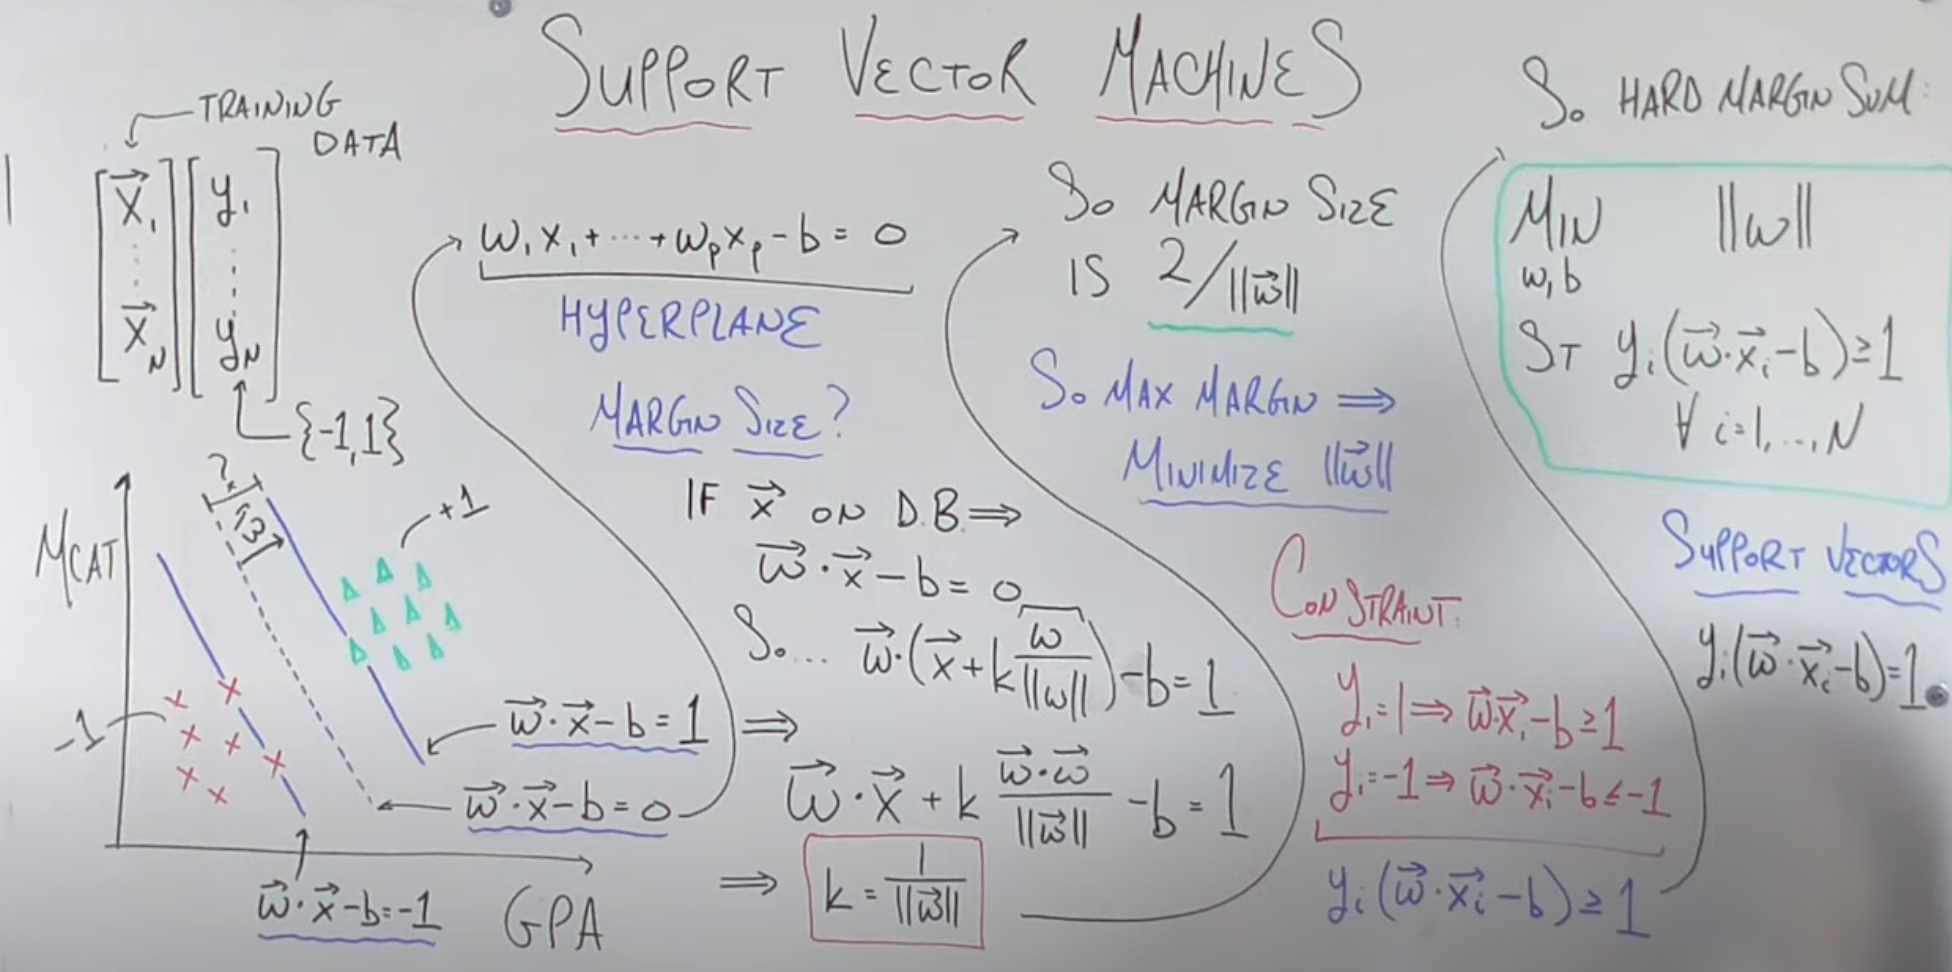 SUPPORT VECTOR MACHINES
TRAINING DATA
[x⃗₁ ⋮ x⃗_N] [y₁ ⋮ y_N]
{-1,1}
MCAT
GPA
?
k
+1
-1
w⃗·x⃗-b=1
w⃗·x⃗-b=0
w⃗·x⃗-b=-1
w₁x₁+⋯+w_px_p-b=0
HYPERPLANE
MARGIN SIZE?
IF x⃗ ON D.B. ⇒
w⃗·x⃗-b=0
So... w⃗·(x⃗+k w/||w||)-b=1
⇒ w⃗·x⃗+k w⃗·w⃗/||w⃗|| -b=1
⇒ k=1/||w⃗||
So MARGIN SIZE
IS 2/||w⃗||
So MAX MARGIN ⇒
MINIMIZE ||w⃗||
CONSTRAINT:
yᵢ=1⇒w⃗·x⃗ᵢ-b≥1
yᵢ=-1⇒w⃗·x⃗ᵢ-b≤-1
yᵢ(w⃗·x⃗ᵢ-b)≥1
So HARD MARGIN SVM:
MIN ||w||
w,b
ST yᵢ(w⃗·x⃗ᵢ-b)≥1
∀ i=1,...,N
SUPPORT VECTORS
yᵢ(w⃗·x⃗ᵢ-b)=1